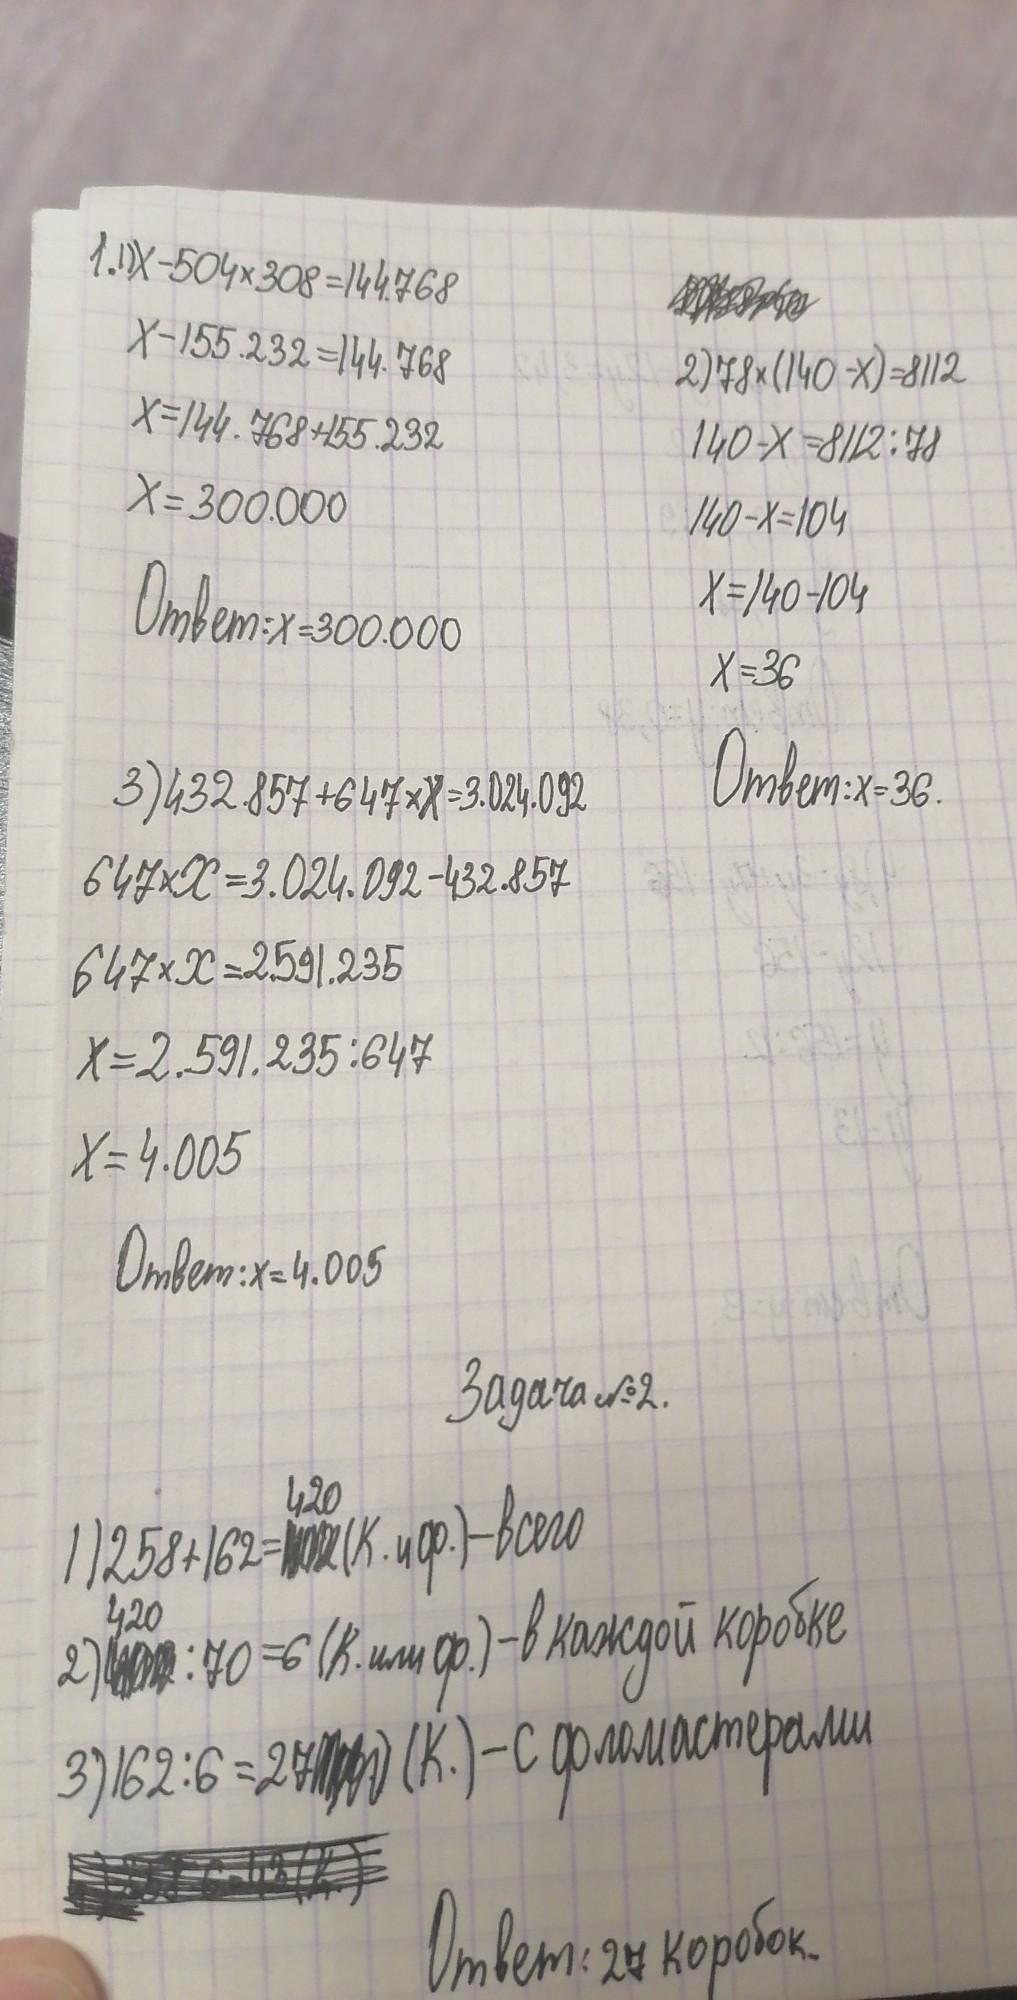 1.1)x-504×308=144.768
x-155.232=144.768
x=144.768+155.232
x=300.000
Ответ:x=300.000
2)78×(140-x)=8112
140-x=8112:78
140-x=104
x=140-104
x=36
Ответ:x=36.
3)432.857+647×x=3.024.092
647×x=3.024.092-432.857
647×x=2.591.235
x=2.591.235:647
x=4.005
Ответ:x=4.005
Задача №2.
1)258+162=420(К.и ф.)-всего
2)420:70=6(К.или ф.)-в каждой коробке
3)162:6=27(К.)-с фломастерами
Ответ:27 коробок.